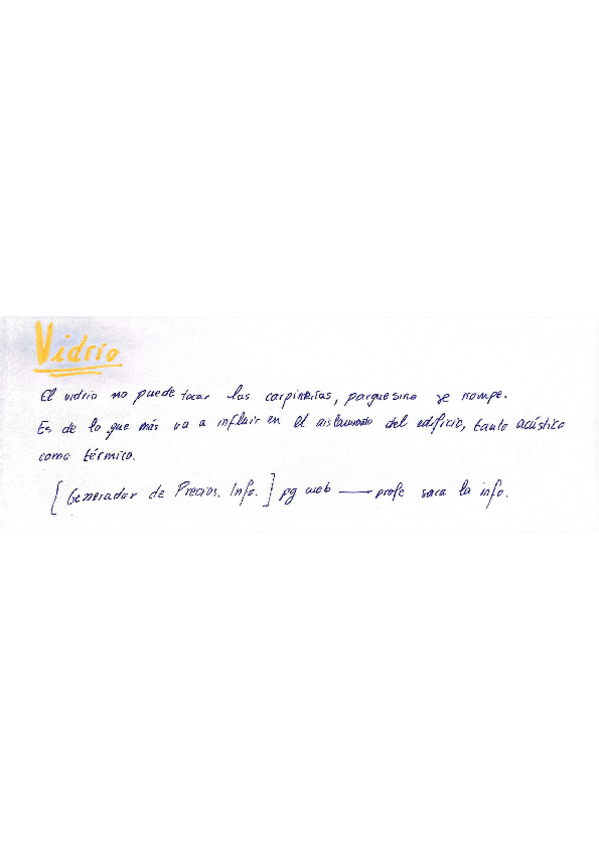 Vidrio
El vidrio no puede tocar las carpinterías, porque sino se rompe.
Es de lo que más va a influir en el aislamiento del edificio, tanto acústico
como térmico.
[Generador de Precios. Info.] pg web — profe saca la info.